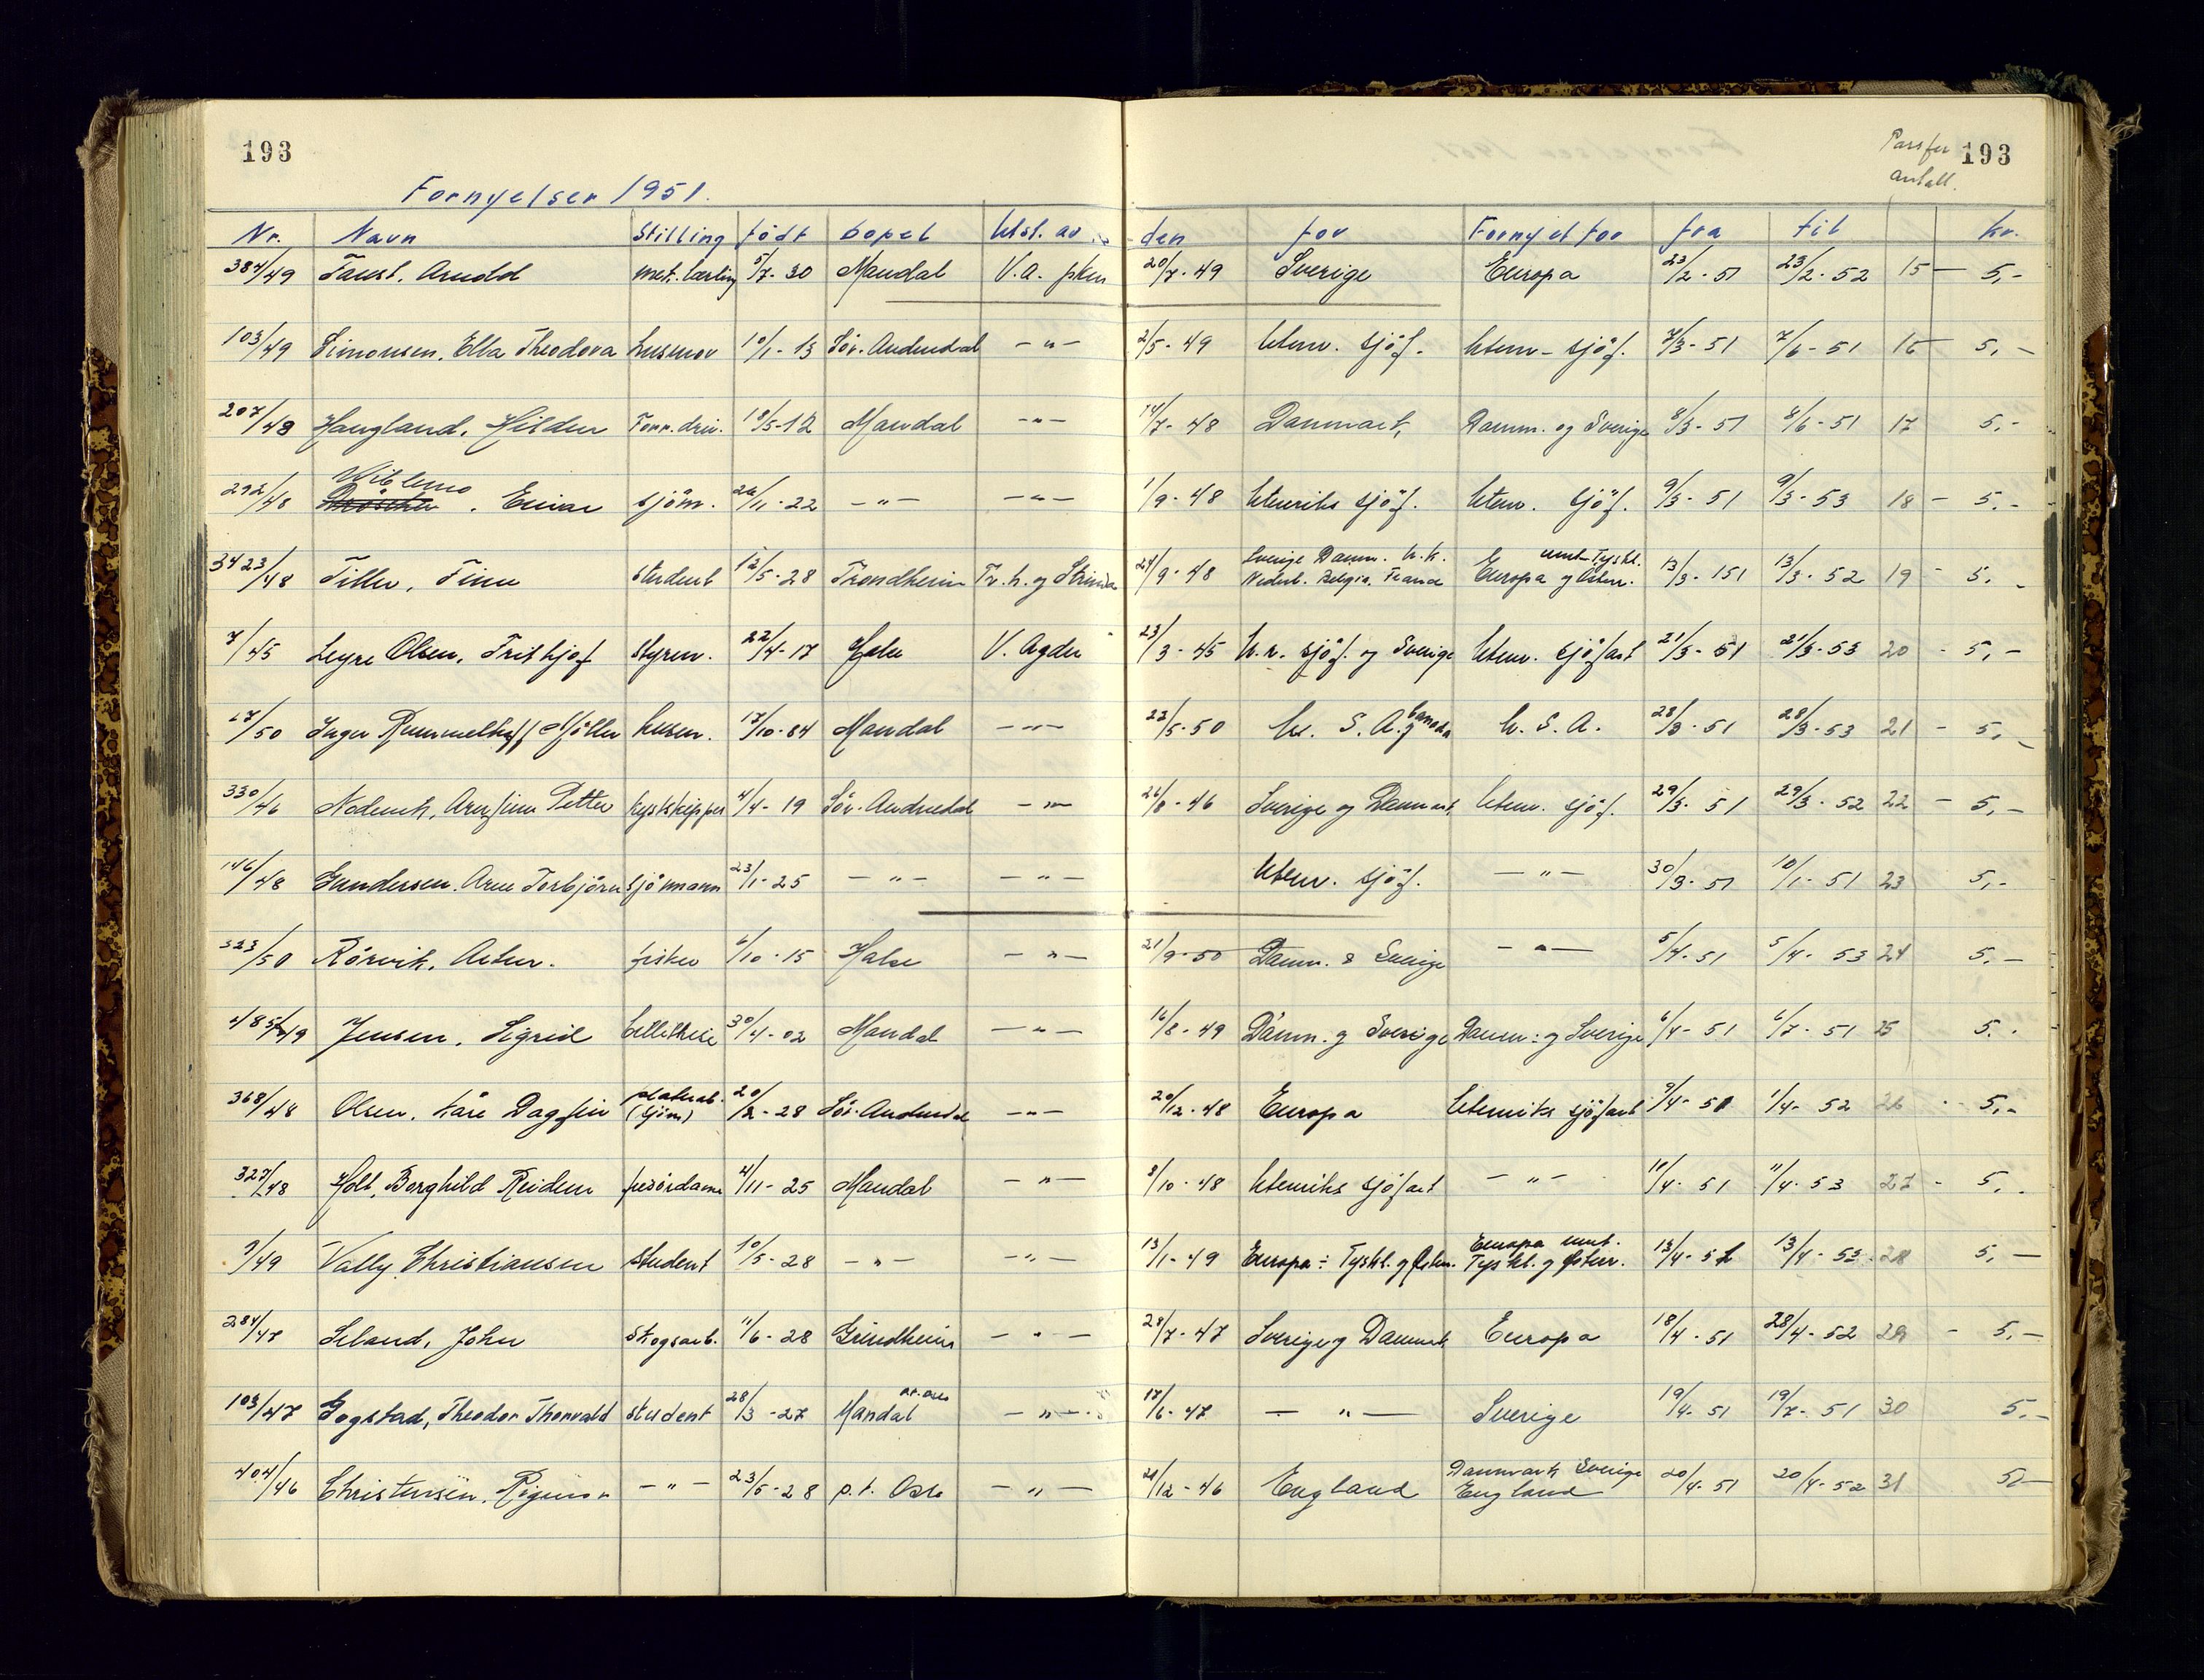 193
Passfor 193
antall.
Fornyelser 1951.
Nr. Navn Stilling født bopel Utst. av den for Fornyet for fra til kr.
384/49 Faust, Arnold mek. lærling 5/7-30 Mandal V.A. 20/7-49 Sverige Europa 23/2-51 23/2-52 15 — 5,-
103/49 Simonsen, Ella Theodora husmor 10/1-13 Sör-Audnedal -"- 2/5-49 Utenr. sjöf. Utenr. sjöf. 7/3-51 7/6-51 16 5,-
207/48 Haugland, Hilden 18/5-12 Mandal -"- 14/7-48 Danmark, Danm. og Sverige 8/3-51 8/6-51 17 5,-
Wiblemo
292/48 . Einar sjöm. 26/11-22 -"- -"- 1/9-48 Utenriks sjöf. Utenr. sjöf. 9/3-51 9/3-53 18 - 5,-
Sverige Danm. U.K. unt. Tyskl.
3423/48 Tiller, Finn student 12/5-28 Trondheim Tr.h. og Strinda 24/9-48 Nederl. Belgia. Frankr Europa og Østerr. 13/3-151 13/3-52 19 - 5,-
7/45 Leyre Olsen, Frithjof styrm. 22/4-17 Halse V. Agder 23/3-45 U.r. sjöf. og Sverige Utenr. sjöfart 21/3-51 21/3-53 20 - 5,-
17/50 Inger Rummelhoff Möller husm. 17/10-84 Mandal -"- 22/5-50 U. S. A. og Canada U. S. A. 28/3-51 28/3-53 21 - 5,-
330/46 Nodenek, Arnfinn Petter kystskipper 4/4-19 Sör-Audnedal -"- 26/8-46 Sverige og Danmark, Utenr. sjöf. 29/3-51 29/3-52 22 - 5,-
146/48 Gundersen. Arne Torbjörn sjömann 23/1-25 -"- -"- Utenr. sjöf. -"- 30/3-51 10/1-51 23 5,-
323/50 Rörvik, Artur. fisker 6/10-15 Halse -"- 21/9-50 Danm. & Sverige -"- 5/4-51 5/4-53 24 5,-
485/49 Jensen, Sigrid 30/4-02 Mandal -"- 16/8-49 Danm. og Sverige Danm. og Sverige 6/4-51 6/7-51 25 5.
platearb.
368/48 Olsen, Kåre Dagfin (sjöm) 20/2-28 Sör-Audnedal -"- 20/12-48 Europa Utenriks sjöfart 9/4-51 1/4-52 26 5,-
327/48 Holt, Borghild Reidun frisördame 4/11-25 Mandal -"- 8/10-48 Utenriks sjöfart -"- 11/4-51 11/4-53 27 - 5,-
Europa unt.
9/49 Vally Christiansen student 10/5-28 -"- -"- 13/1-49 Europa ÷ Tyskl. og Østerr. Tyskl. og Østerr. 13/4-51 13/4-53 28 5,-
284/47 Seland, John Skogsarb. 11/6-28 Grindheim -"- 28/7-47 Sverige og Danmark, Europa 18/4-51 28/4-52 29 - 5,-
103/47 Gogstad, Theodor Thorvald student 28/3-27 Mandal -"- 17/6-47 -"- Sverige 19/4-51 19/7-51 30 5,-
Danmark Sverige
404/46 Christensen, Rigmor -"- 23/5-28 p.t. Oslo -"- 21/12-46 England England 20/4-51 20/4-52 31 5,-